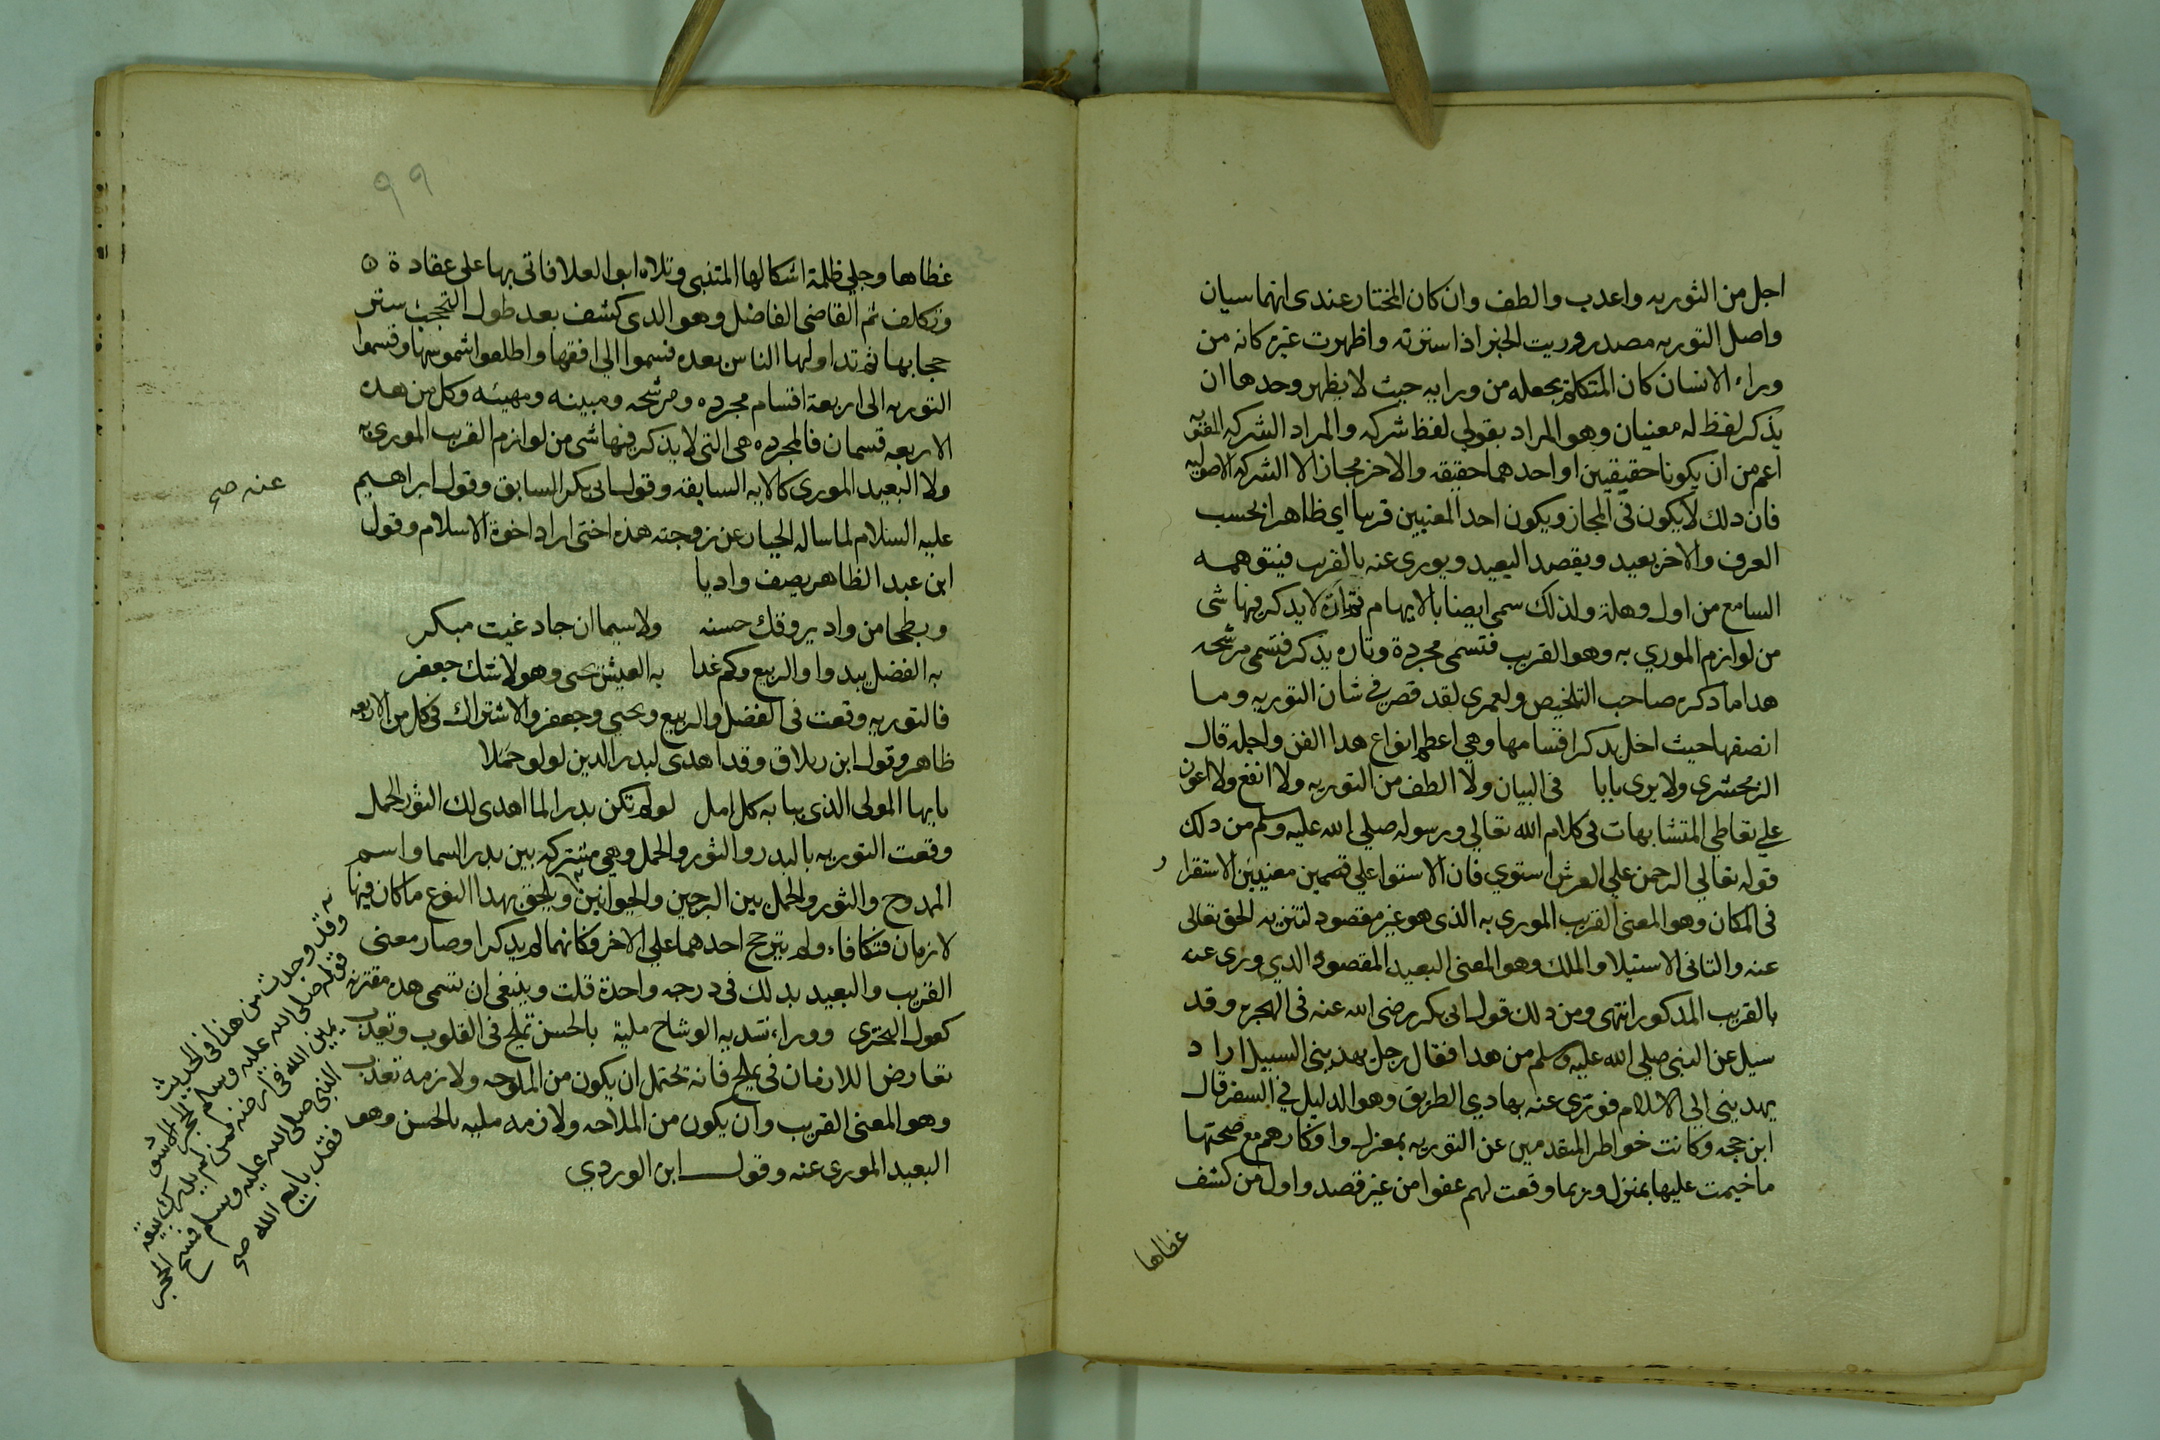 اجل من التوريه واعدب والطف وان كان المختار عندى انهما سيان
واصل التوريه مصدر وريت الخبر اذا سترته واظهرت غيره كانه من
وراء الانسان كان المتكلم يجعله من ورايه حيث لا يظهر وحدها ان
يذكر لفظ له معنيان وهو المراد بقولي لفظ شركه والمراد الشركه اللغويه
اعم من ان يكونا حقيقيين او احدهما حقيقه والاخر مجاز الا الشركه الاصوليه
فان دلك لا يكون في المجاز ويكون احد المعنيين قريبا اي ظاهرا بحسب
العرف والاخر بعيد ويقصد البعيد ويورى عنه بالقريب فيتوهمه
السامع من اول وهلة ولذلك سمى ايضا بالايهام ثم تارة لا يدكر فيها شى
من لوازم الموري به وهو القريب فتسمى مجردة وتاره يذكر فتسمى مرشحه
هدا ما دكره صاحب التلخيص ولعمرى لقد قصر في شان التوريه وما
انصفها حيث اخل بدكر اقسامها وهي اعظم انواع هدا الفن واجله قال
الزمخشرى ولا يرى بابا في البيان ولا الطف من التوريه ولا انفع ولا اعون
علي تعاطي المتشابهات في كلام الله تعالي ورسوله صلي الله عليه وسلم من دلك
قوله تعالي الرحمن علي العرش استوي فان الاستوا علي قسمين معنيين الاستقرار
فى المكان وهو المعنى القريب المورى به الذى هو غير مقصود لتنزيه الحق تعالى
عنه والثانى الاستيلا والملك وهو المعنى البعيد المقصود الدي ورى عنه
بالقريب المدكور انتهى ومن دلك قول ابى بكر رضى الله عنه فى الهجره وقد
سيل عن النبى صلي الله عليه وسلم من هدا فقال رجل يهدينى السبيل اراد
يهدينى الى الاسلام فورى عنه بهادي الطريق وهو الدليل في السفر قال
ابن حجه وكانت خواطر المتقدمين عن التوريه بمعزل وافكارهم مع صحتها
ما خيمت عليها بمنزل وربما وقعت لهم عفوا من غير قصد واول من كشف
غطاها
٩٩
غطاها وجلي ظلمة اشكالها المتنبى وتلاه ابو العلا فاتى بها على عقادة
وتكالف ثم القاضى الفاضل وهو الدى كشف بعد طول التحجب ستر
حجابها ثم تداولها الناس بعده فسموا الي افقها واطلعوا شموسها وقسموا
التوريه الى اربعة اقسام مجرده ومرشحه ومبينه ومهيئه وكل من هده
الاربعه قسمان فالمجرده هى التى لا يذكر فيها شى من لوازم القريب المورى به
ولا البعيد المورى كالايه السابقه وقول ابى بكر السابق وقول ابراهيم
عنه صح
عليه السلام لما ساله الجبار عن زوجته هذه اختى اراد اخوة الاسلام وقول
ابن عبد الظاهر يصف واديا
وبطحا من واد يروقك حسنه ولا سيما ان جاد غيث مبكر
به الفضل يبدوا والربيع وكم غدا به العيش يحى وهو لا شك جعفر
فالتوريه وقعت فى الفضل والربيع ويحيى وجعفر والاشتراك في كل من الاربعه
ظاهر وقول ابن زيلاق وقد اهدى لبدر الدين لولو حملا
يايها المولى الذي بيابه كل امل لو لم تكن بدرا لما اهدى لك الثور الحمل
وقعت التوريه بالبدر والثور والحمل وهي مشتركه بين بدر السما واسم
الممدوح والثور والحمل بين البرجين والحيوانين ويلحق بهدا النوع ما كان فيها
لازمان فتكافاء ولم يترجح احدهما علي الاخر فكانهما لم يدكرا وصار معنى
القريب والبعيد بدلك فى درجه واحدة قلت وينبغى ان تسمى هده مقترنه
كقول البحترى ووراء تسديه الوشاح ملية بالحسن تملح فى القلوب وتعذب
تعارض اللازمان فى تملح فانه تحتمل ان يكون من الملوحه ولازمه تعذب
وهو المعنى القريب وان يكون من الملاحه ولازمه مليه بالحسن وهو
البعيد المورى عنه وقول ابن الوردي
وقد وجدت من هذا فى الحديث
قوله صلى الله عليه وسلم الحجر الاسود
يمين الله فى ارضه فمن لم يدرك بيعه
النبى صلى الله عليه وسلم فمسح الحجر
فقد بايع الله صح